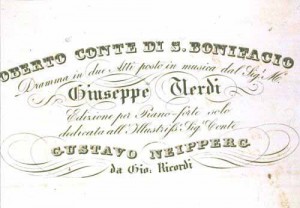 OBERTO CONTE DI S. BONIFACIO
Dramma in due Atti posto in musica dal Sig.r M.o
Giuseppe Verdi
Edizione per Piano-forte solo
dedicata all' Illustriss.o Sig. Conte
GUSTAVO NEIPPERG
da Gio: Ricordi